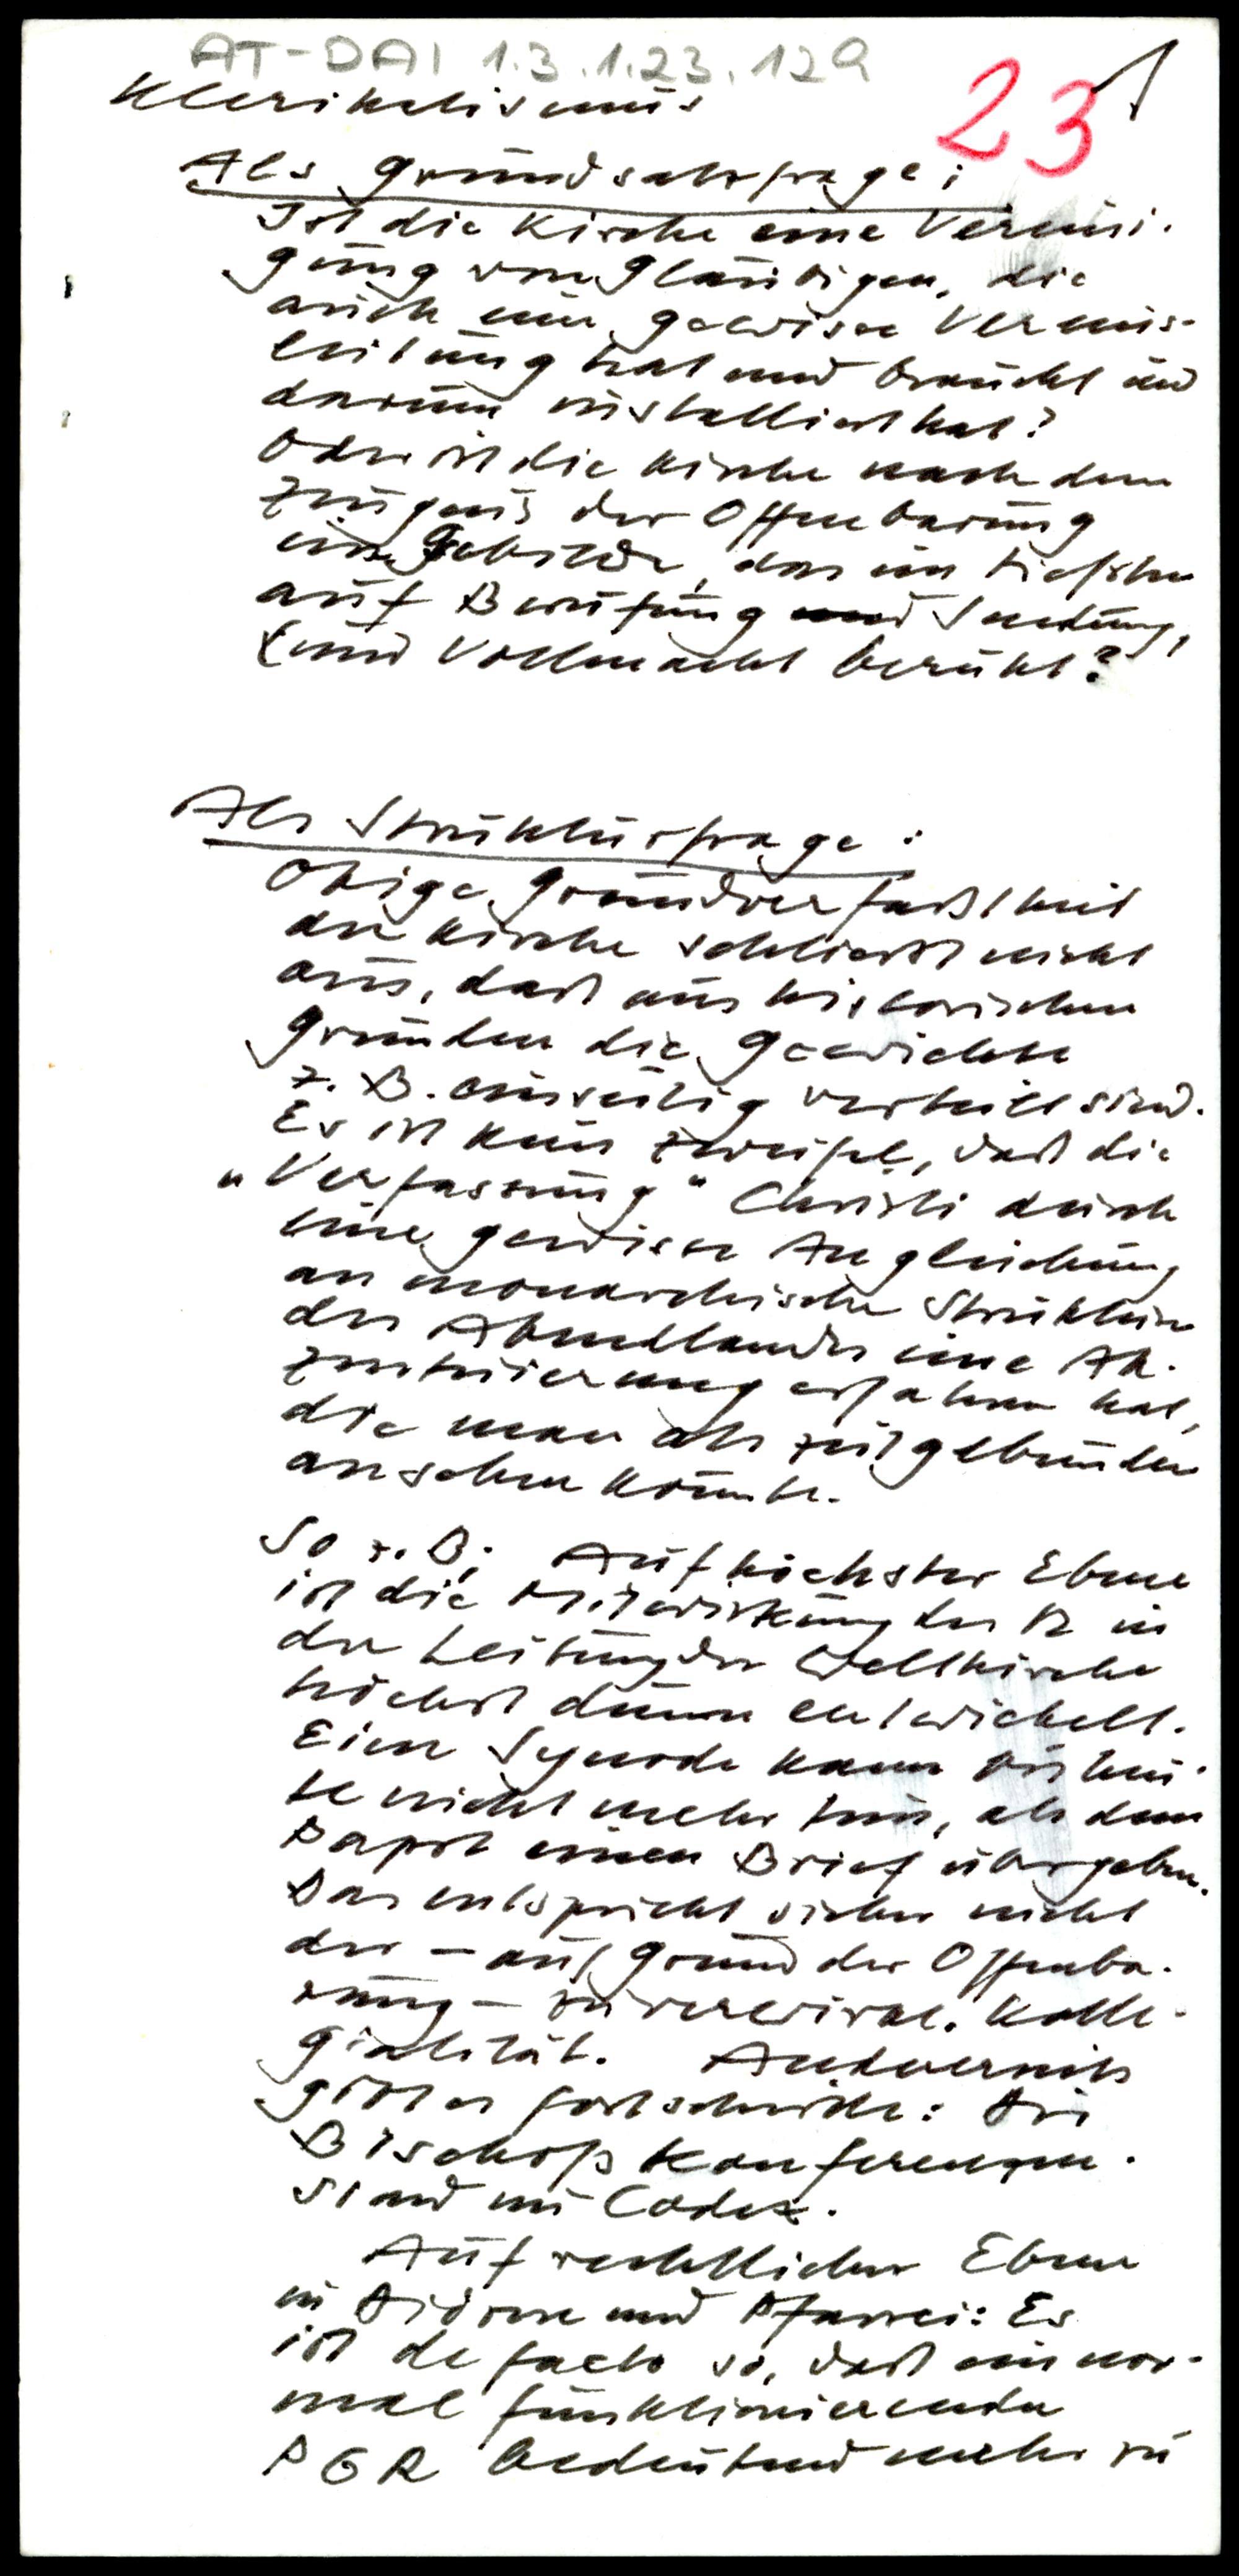 AT-DAI 1.3.1.23.129
23 1
Klerikalismus
Als Grundsatzfrage:
Ist die Kirche eine Vereini-
gung von Gläubigen, die
auch eine gewisse Vereins-
leitung hat und braucht und
darum installiert hat?
Oder ist die Kirche nach dem
Zeugnis der Offenbarung
ein Gebilde, das im tiefsten
auf Berufung Sendung,
(und Vollmacht beruht?
Als Strukturfrage:
Obige Grundverfaßtheit
der Kirche schließt nicht
aus, daß aus historischen
Gründen die Gewichte
z. B. einseitig verteilt sind.
Es ist kein Zweifel, daß die
"Verfassung" Christi durch
eine gewisse Angleichung
an monarchische Strukturen
des Abendlandes eine Ak-
zentuierung erfahren hat,
die man als zeitgebunden
ansehen könnte.
So z. B: Auf höchster Ebene
ist die Mitwirkung der in
der Leitung der Weltkirche
höchst dünn entwickelt.
Eine Synode kann bis heu-
te nicht mehr tun, als dem
Papst einen Brief übergeben.
Das entspricht sicher nicht
der - auf Grund der Offenba-
rung - Kolle-
gialität. Andererseits
gibt es Fortschritte: Die
Bischofskonferenzen.
sind im Codex.
Auf rechtlicher Ebene
in Diözese und Pfarrei: Es
ist de facto so, daß ein nor-
mal funktionierender
PGR bedeutend mehr zu